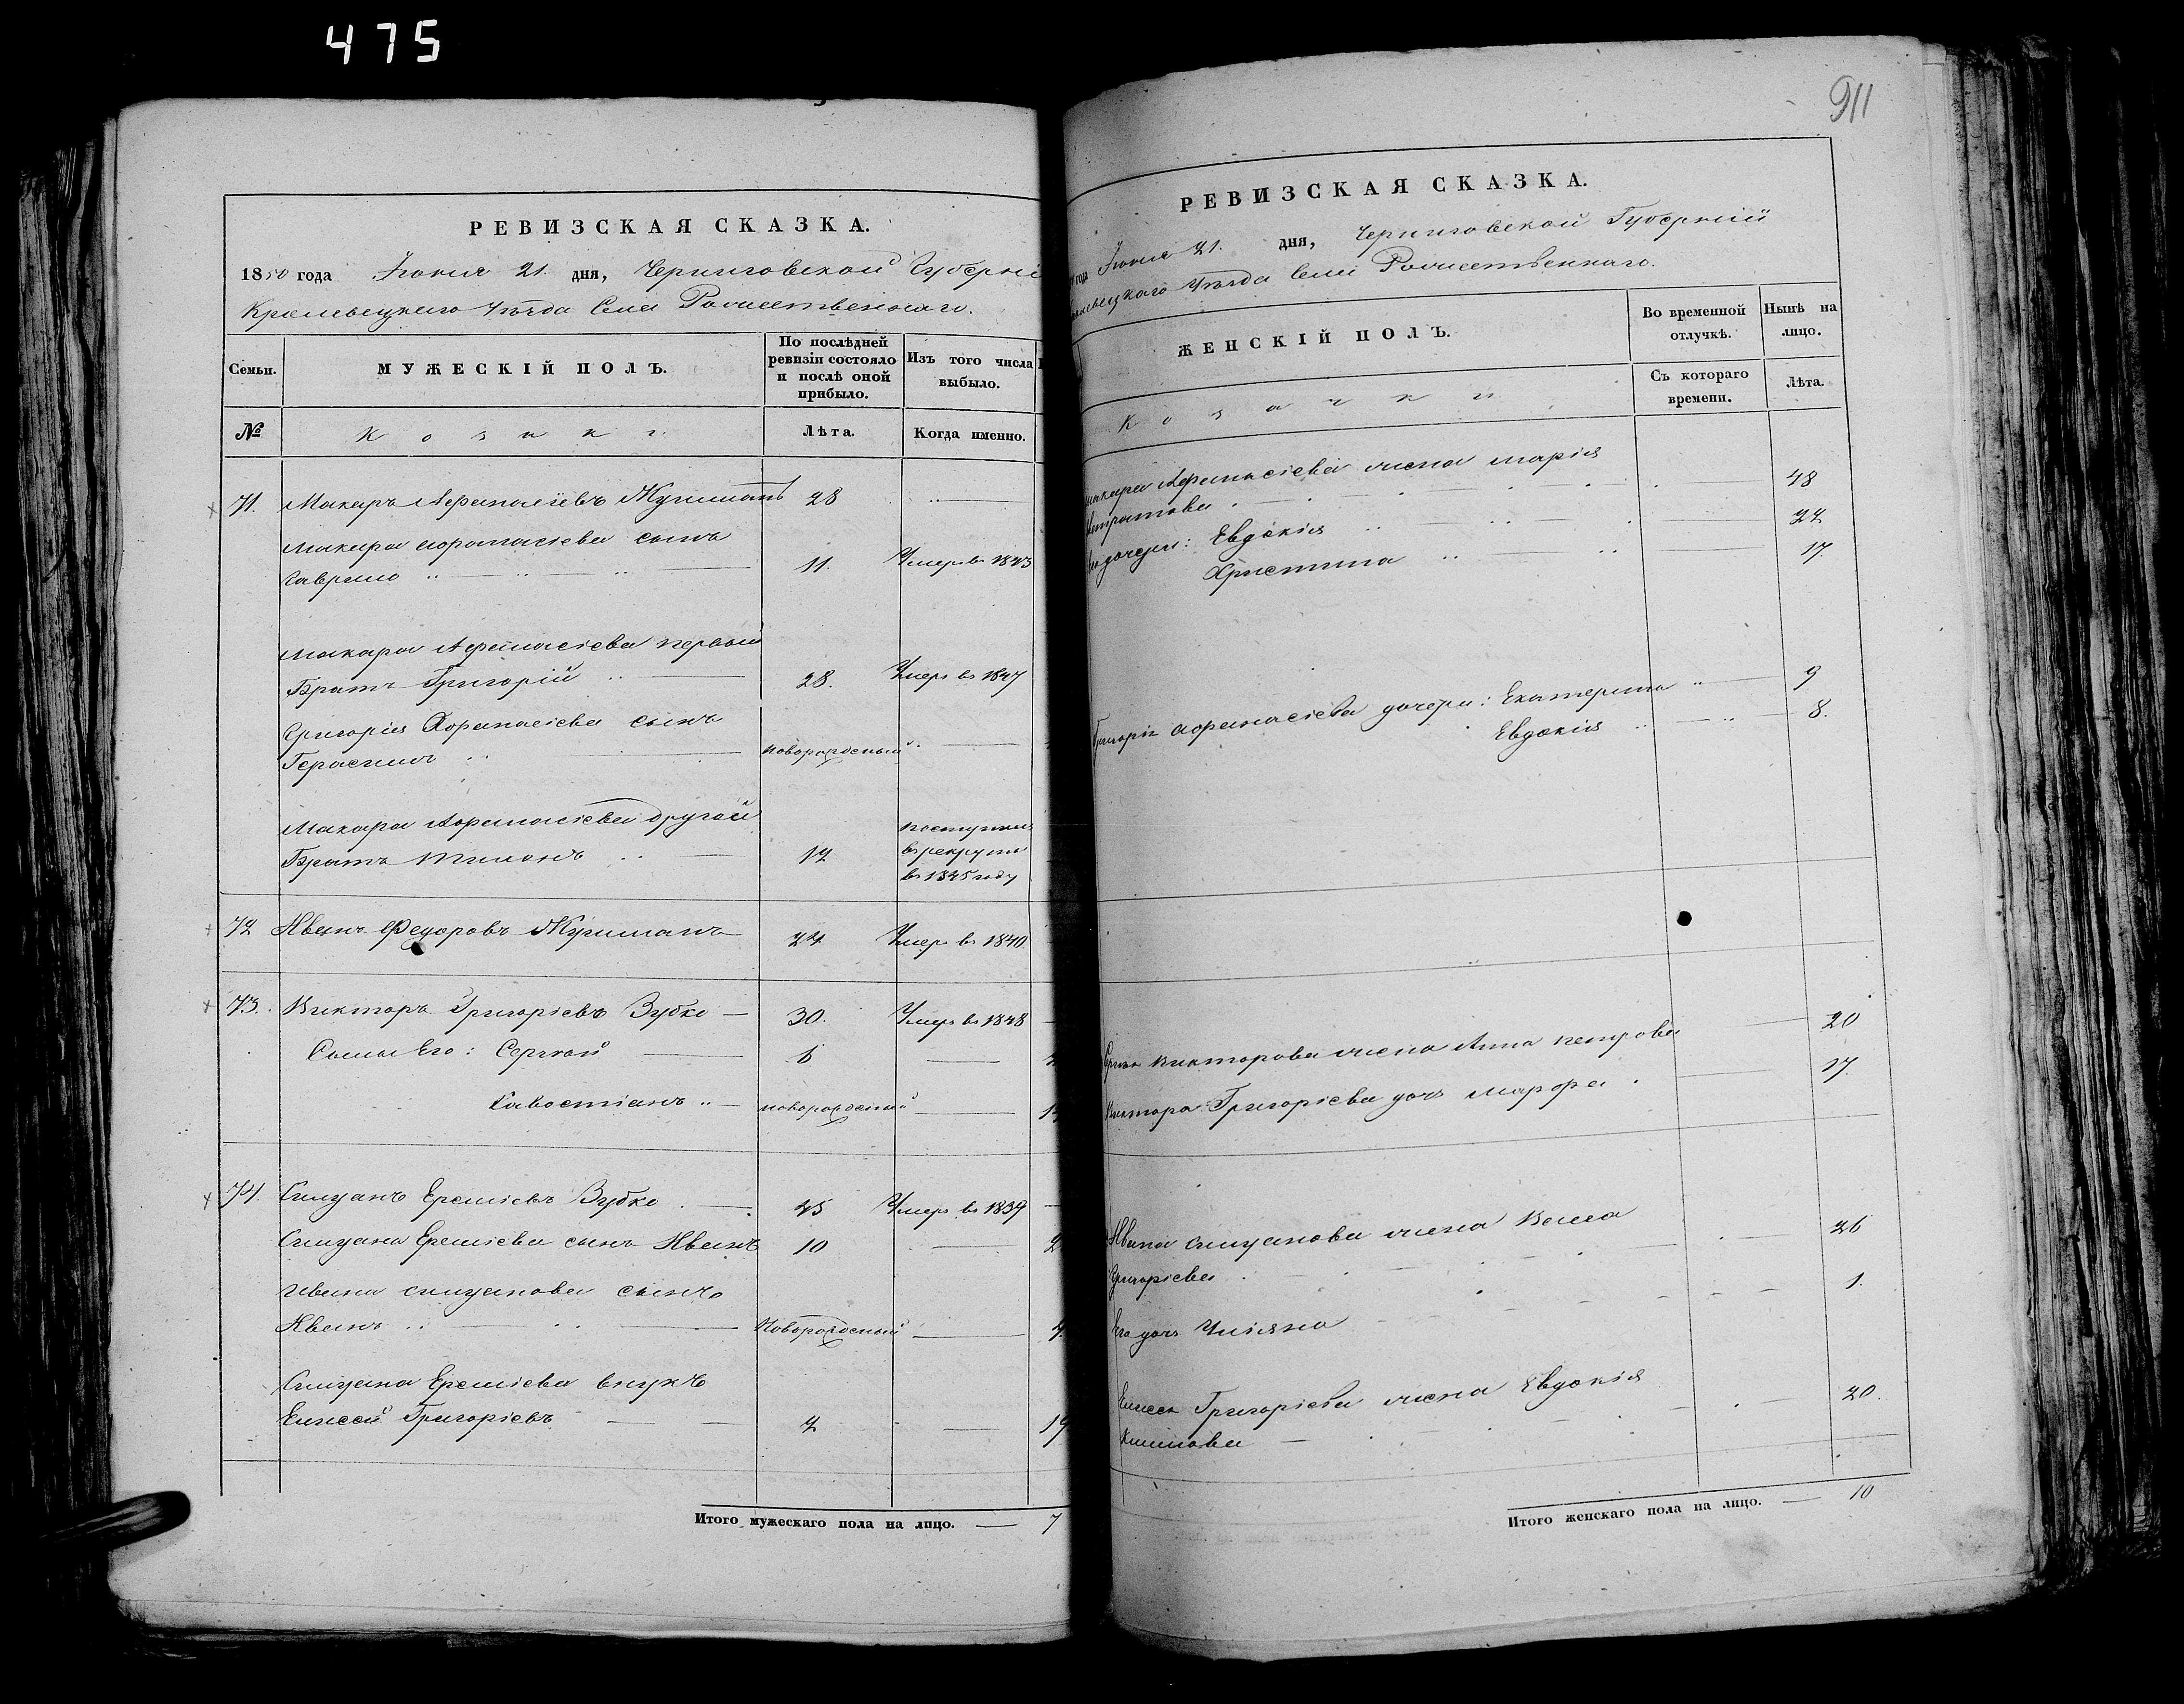 475
РЕВИЗСКАЯ СКАЗКА.
1850 года Іюня 21. дня, Черниговской Губерніи
Кролевецкаго Уѣзда Села Рожественскаго.
Семьи.
МУЖЕСКІЙ ПОЛЪ.
По послѣдней ревизіи состояло и послѣ оной прибыло.
Изъ того числа выбыло.
№
Козаки
Лѣта.
Когда именно.
71. Макаръ Афанасіевъ 28
Макара Афанасіева сынъ
Гаврило 11. Умеръ въ 1843
Макара Афанасіева первый
Братъ Григорій 28. Умеръ въ 1847
Григорія Афанасіева сынъ
Герасимъ новорожденый
Макара Афанасіева другой
Братъ Тимонъ 12 поступилъ
въ рекруты
въ 1845 году
72 Иванъ Федоровъ 24 Умеръ въ 1840.
73. Викторъ Григоріевъ Зубко 30. Умеръ въ 1848
Сыны Его: Сергѣй 6
Савостіанъ новорожденый
74. Силуанъ Ереміевъ Зубко 45 Умеръ въ 1839
Силуана Ереміева сынъ Иванъ 10
Ивана Силуанова сынъ
Иванъ Новорожденый
Силуана Ереміева внукъ
Елисей Григоріевъ 7
Итого мужескаго пола на лицо. 7
911
РЕВИЗСКАЯ СКАЗКА.
года Іюня 21. дня, Черниговской Губерніи
Уѣзда Села Рожественскаго.
ЖЕНСКІЙ ПОЛЪ.
Во временной отлучкѣ.
Нынѣ на лицо.
Козачки
Съ котораго времени.
Лѣта.
Макара Афанасіева жена Марія
48
Его дочери: Евдокія 22
Христина 17.
Григорія Афанасіева дочери: Екатерина 9
Евдокія 8.
Викторова жена Анна Петрова 20
Виктора Григоріева дочь Марфа 17.
Ивана Силуанова жена
Григоріева 26
Его дочь Уліяна 1.
Елисея Григоріева жена Евдокія
Климова 20.
Итого женскаго пола на лицо. 10